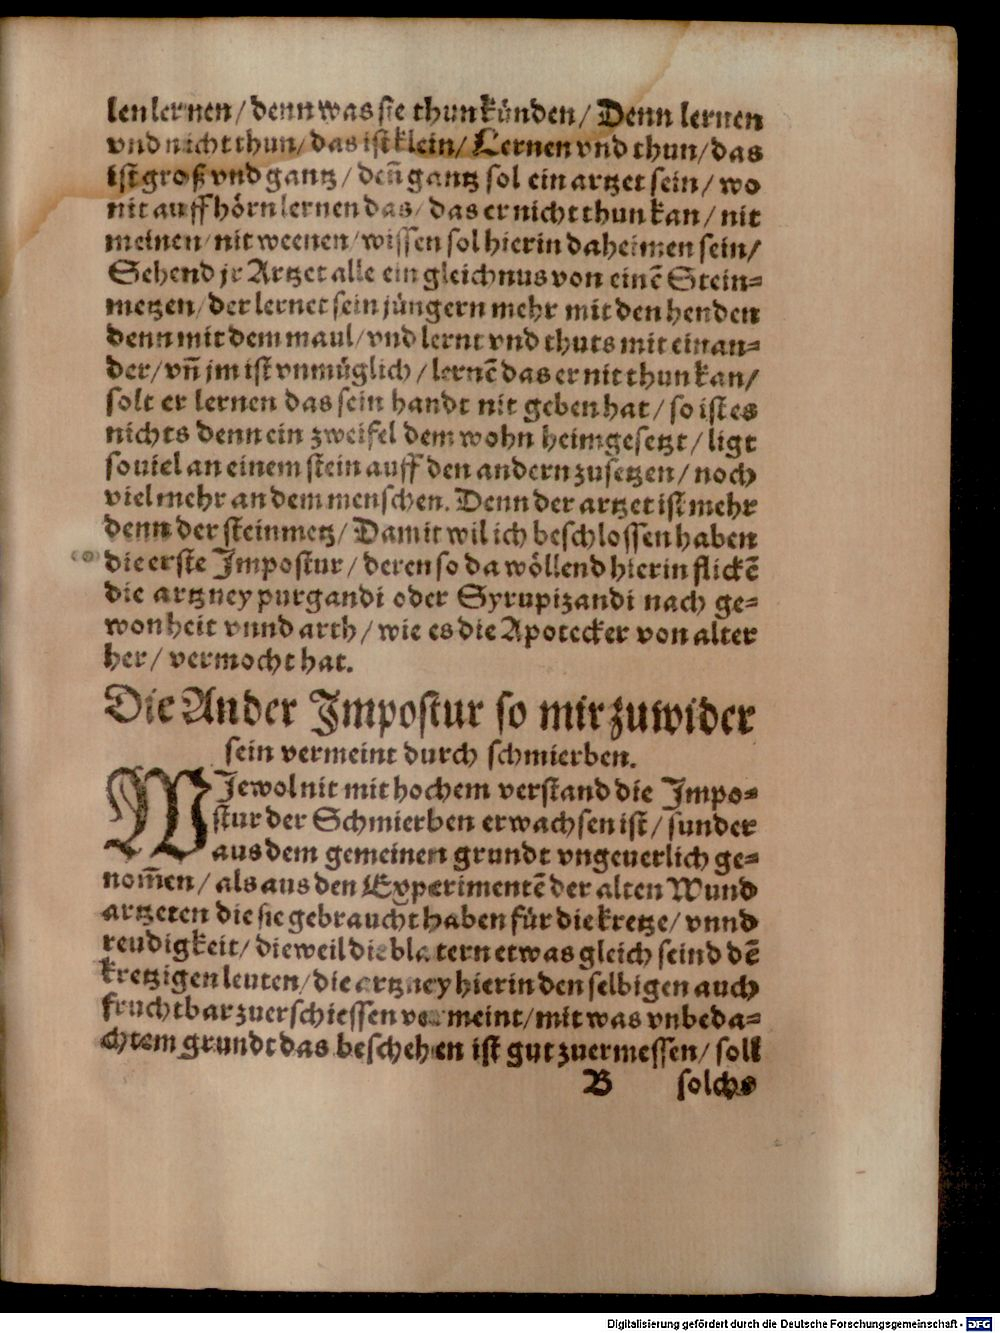 len lernen / denn was sie thun künden / Denn lernen
vnd nicht thun / das ist klein / Lernen vnd thun / das
ist groß vnd gantz / deñ gantz sol ein artzet sein / wo
nit auff hörn lernen das / das er nicht thun kan / nit
meinen / nit weenen / wissen sol hierin daheimen sein /
Sehend jr Artzet alle ein gleichnus von einē Stein⸗
metzen / der lernet sein jüngern mehr mit den henden
denn mit dem maul / vnd lernt vnd thuts mit einan⸗
der / vñ jm ist vnmüglich / lernē das er nit thun kan /
solt er lernen das sein handt nit geben hat / so ist es
nichts denn ein zweifel dem wohn heimgesetzt / ligt
souiel an einem stein auff den andern zusetzen / noch
viel mehr an dem menschen. Denn der artzet ist mehr
denn der steinmetz / Damit wil ich beschlossen haben
die erste Impostur / deren so da wöllend hierin flickē
die artzney purgandi oder Syrupizandi nach ge⸗
wonheit vnnd arth / wie es die Apotecker von alter
her / vermocht hat.
Die Ander Impostur so mir zuwider
sein vermeint durch schmierben.
WJewol nit mit hochem verstand die Impo⸗
stur der Schmierben erwachsen ist / sunder
aus dem gemeinen grundt vngeuerlich ge⸗
nom̄en / als aus den Experimentē der alten Wund
artzeten die sie gebraucht haben für die kretze / vnnd
reudigkeit / dieweil die blatern etwas gleich seind dē
kretzigen leuten / die artzney hierin den selbigen auch
fruchtbar zuerschiessen vermeint / mit was vnbeda⸗
chtem grundt das beschehen ist gut zuermessen / soll
B solchs
Digitalisierung gefördert durch die Deutsche Forschungsgemeinschaft - DFG